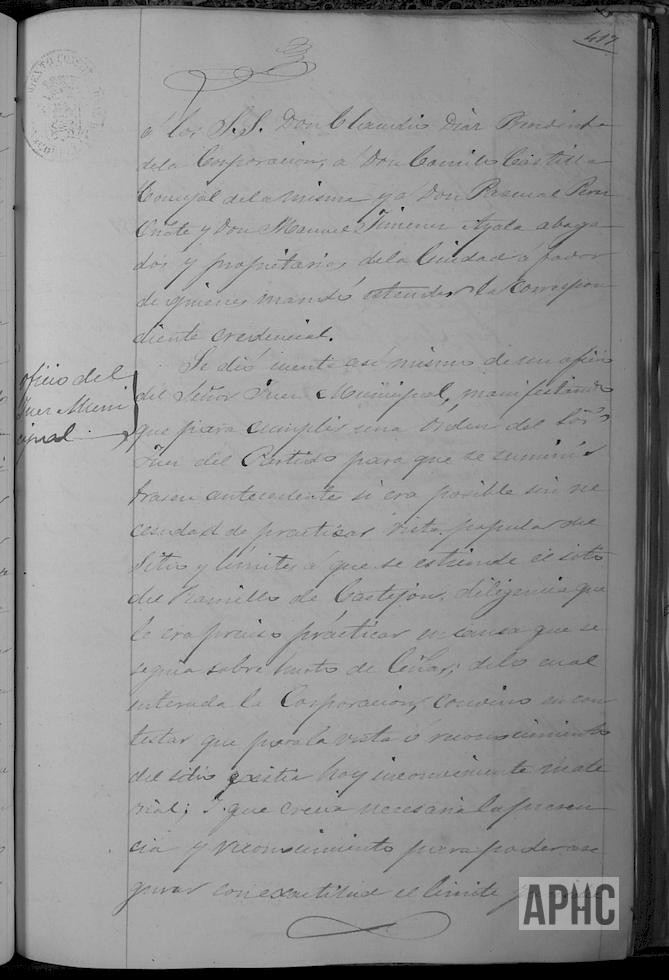 417
á los S.S. Don Claudio Diaz
de la Corporacion, á Don Camilo Castilla
Concejal de la misma y á Don Pascual Perez
Oñate y Don Manuel Jimenez Ayala aboga-
dos y propietarios de la Ciudad á favor
de quienes mandó estender la correspon
diente credencial.
oficio del
Juez Muni
cipal
Se dió cuenta asi mismo de un oficio
del Señor Juez Municipal, manifestando
que para cumplir una órden del Sor
Juez del Partido para que se suminis
trasen antecedente si era posible sin ne
cesidad de practicar vista popular del
Sitio y límites á que se estiende el soto
del Ramillo de Castejon, diligencia que
le era preciso practicar en causa que se
seguia sobre hurto de leñas; de lo cual
enterada la Corporacion, convino en con
testar que para la vista ó reconocimiento
del sitio existia hoy inconveniente mate
rial; y que creia necesaria la presen-
cia y reconocimiento para poder ase
gurar con exactitud el límite
APHC